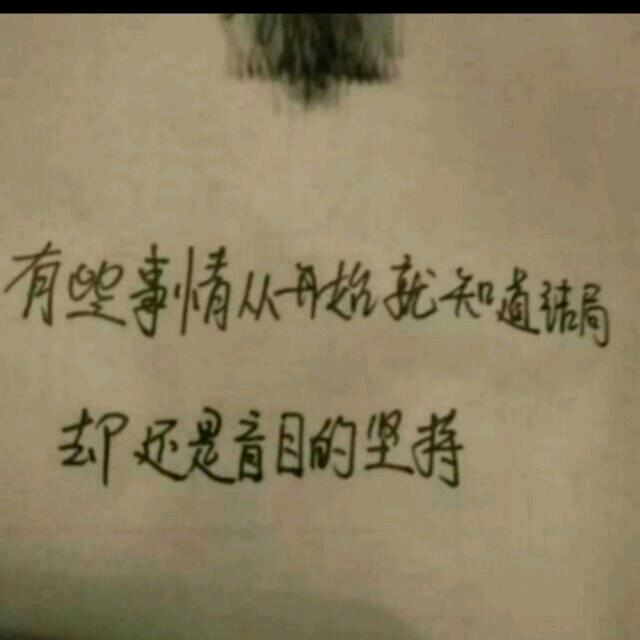 有些事情从开始就知道结局
却还是盲目的坚持